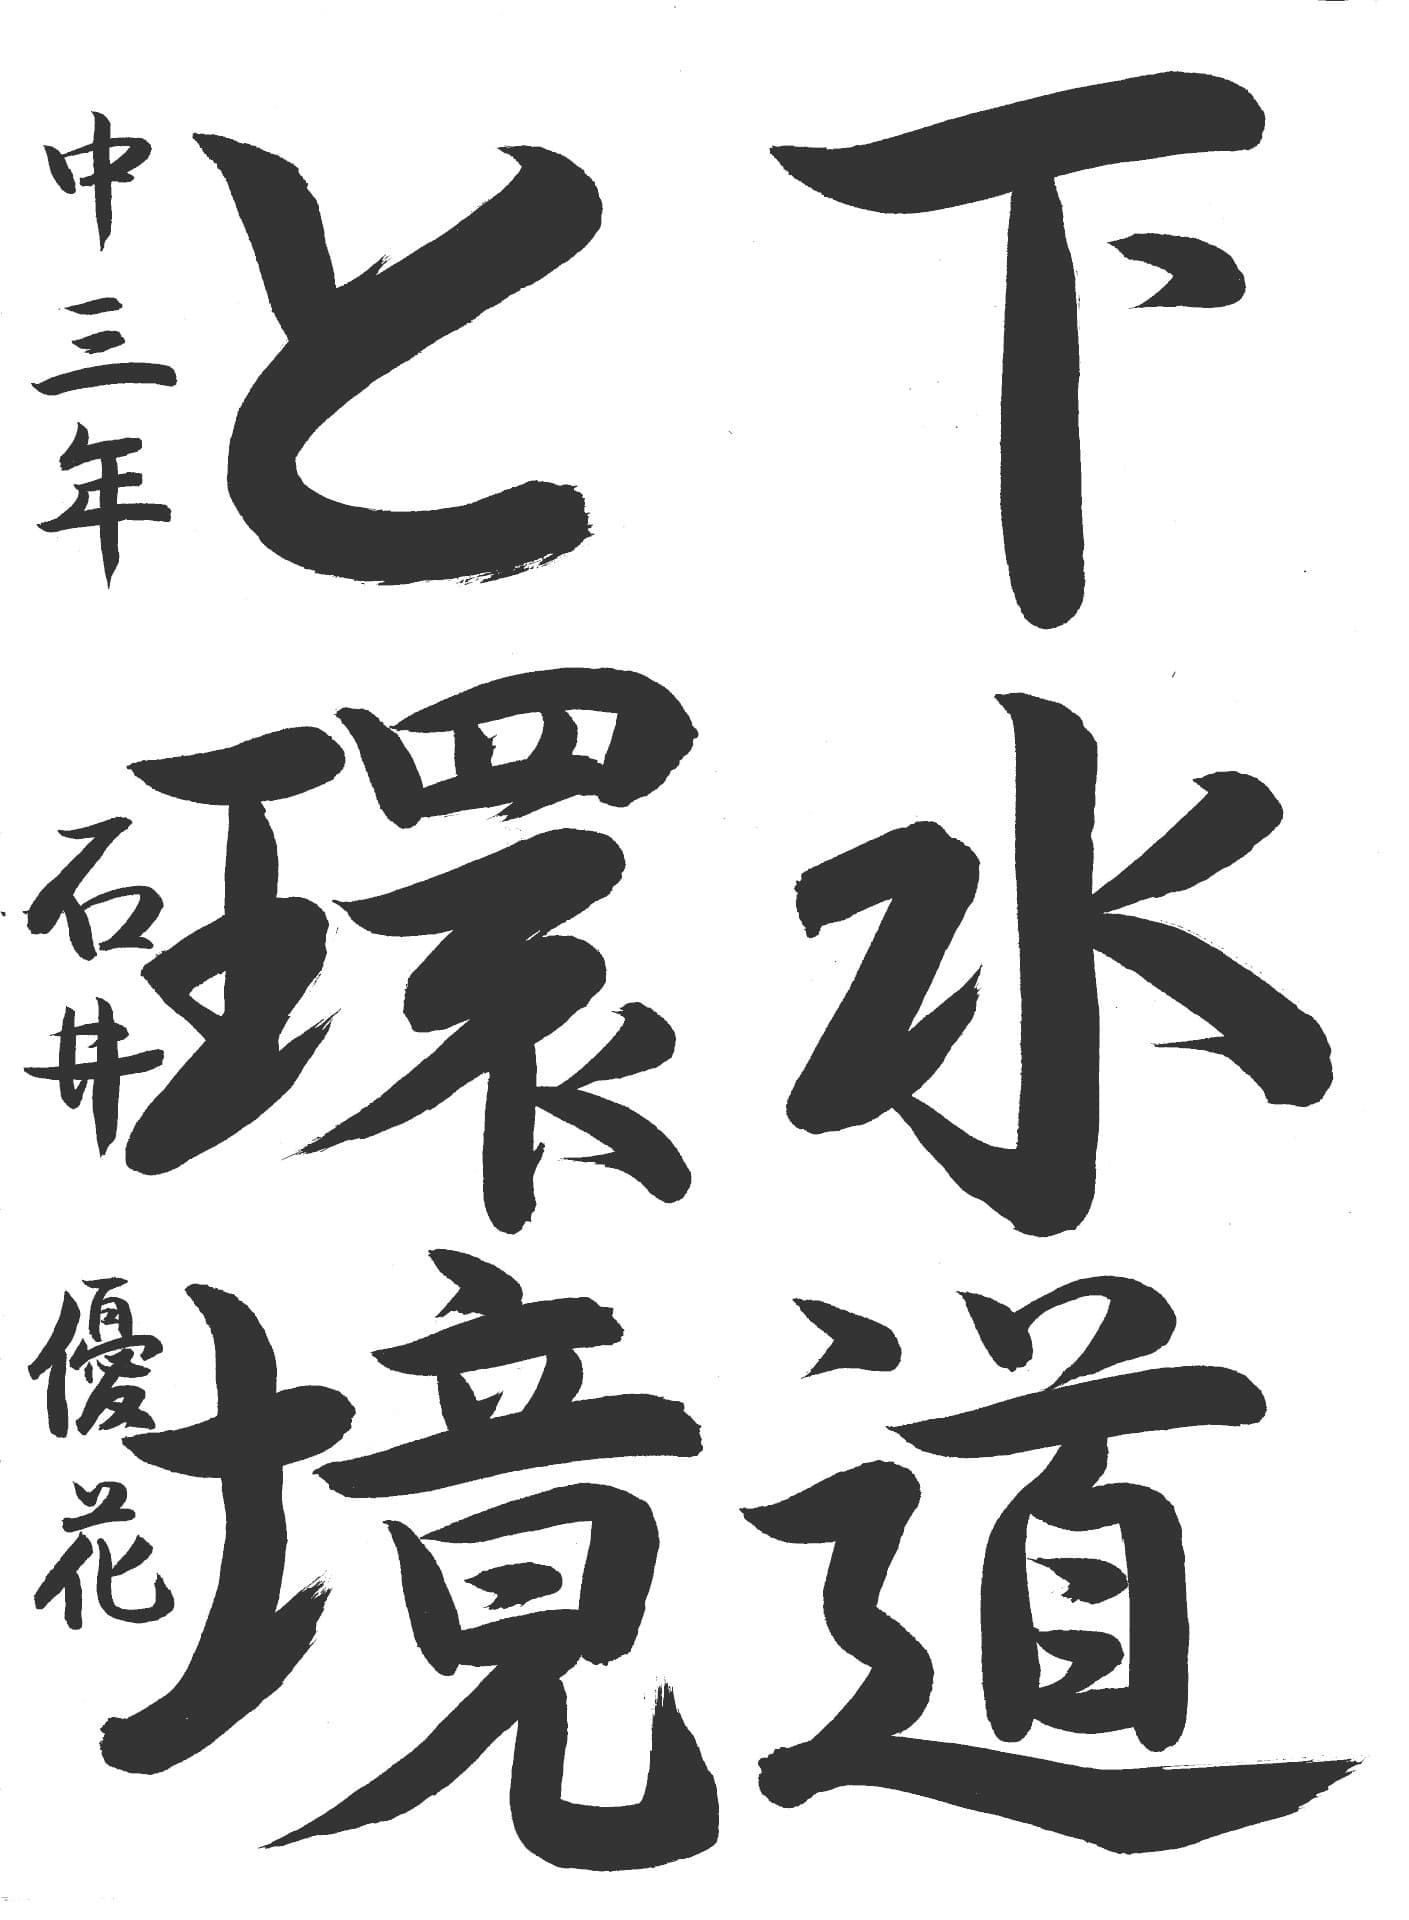 下水道
と環境
中三年 石井優花